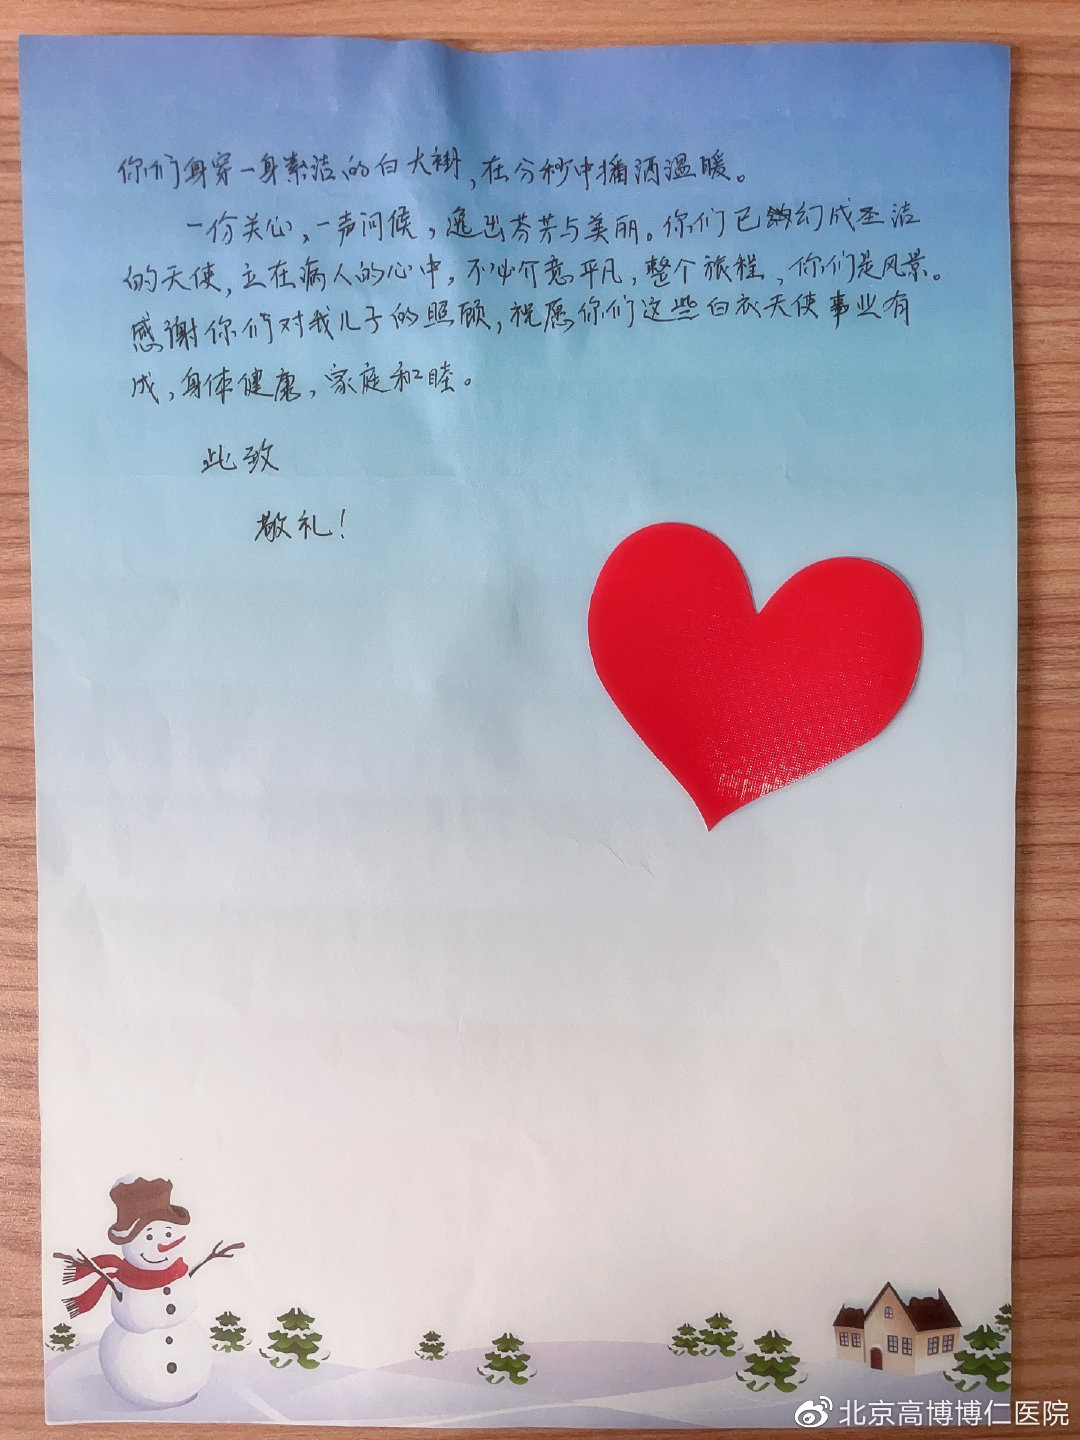 你们身穿一身素洁的白大褂，在分秒中播洒温暖。
一份关心，一声问候，逸出芬芳与美丽。你们已幻成圣洁
的天使，立在病人的心中，不必介意平凡，整个旅程，你们是风景。
感谢你们对我儿子的照顾，祝愿你们这些白衣天使事业有
成，身体健康，家庭和睦。
此致
敬礼！
北京高博博仁医院